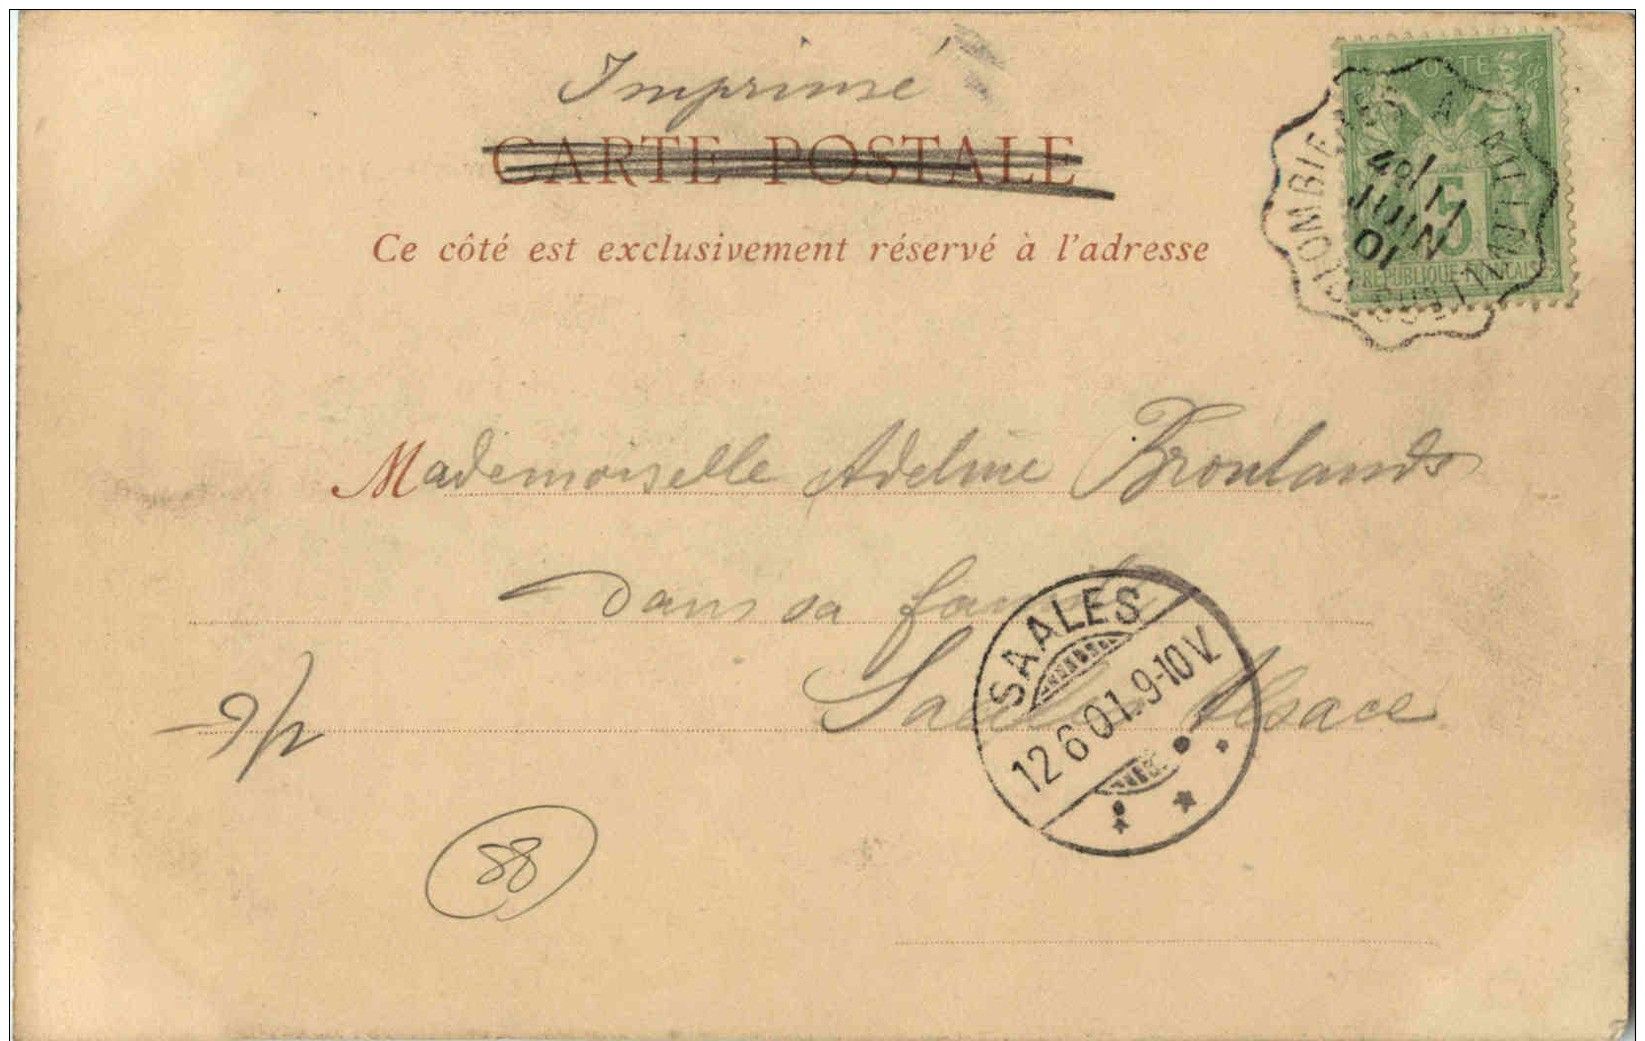 Imprimé
CARTE POSTALE
Ce côté est exclusivement réservé à l'adresse
POSTE
5
RÉPUBLIQUE FRANÇAISE
11
JUIN
01
Mademoiselle Adeline
dans sa famille
Saales Alsace
SAALES
12 6 01. 9-10 V.
88